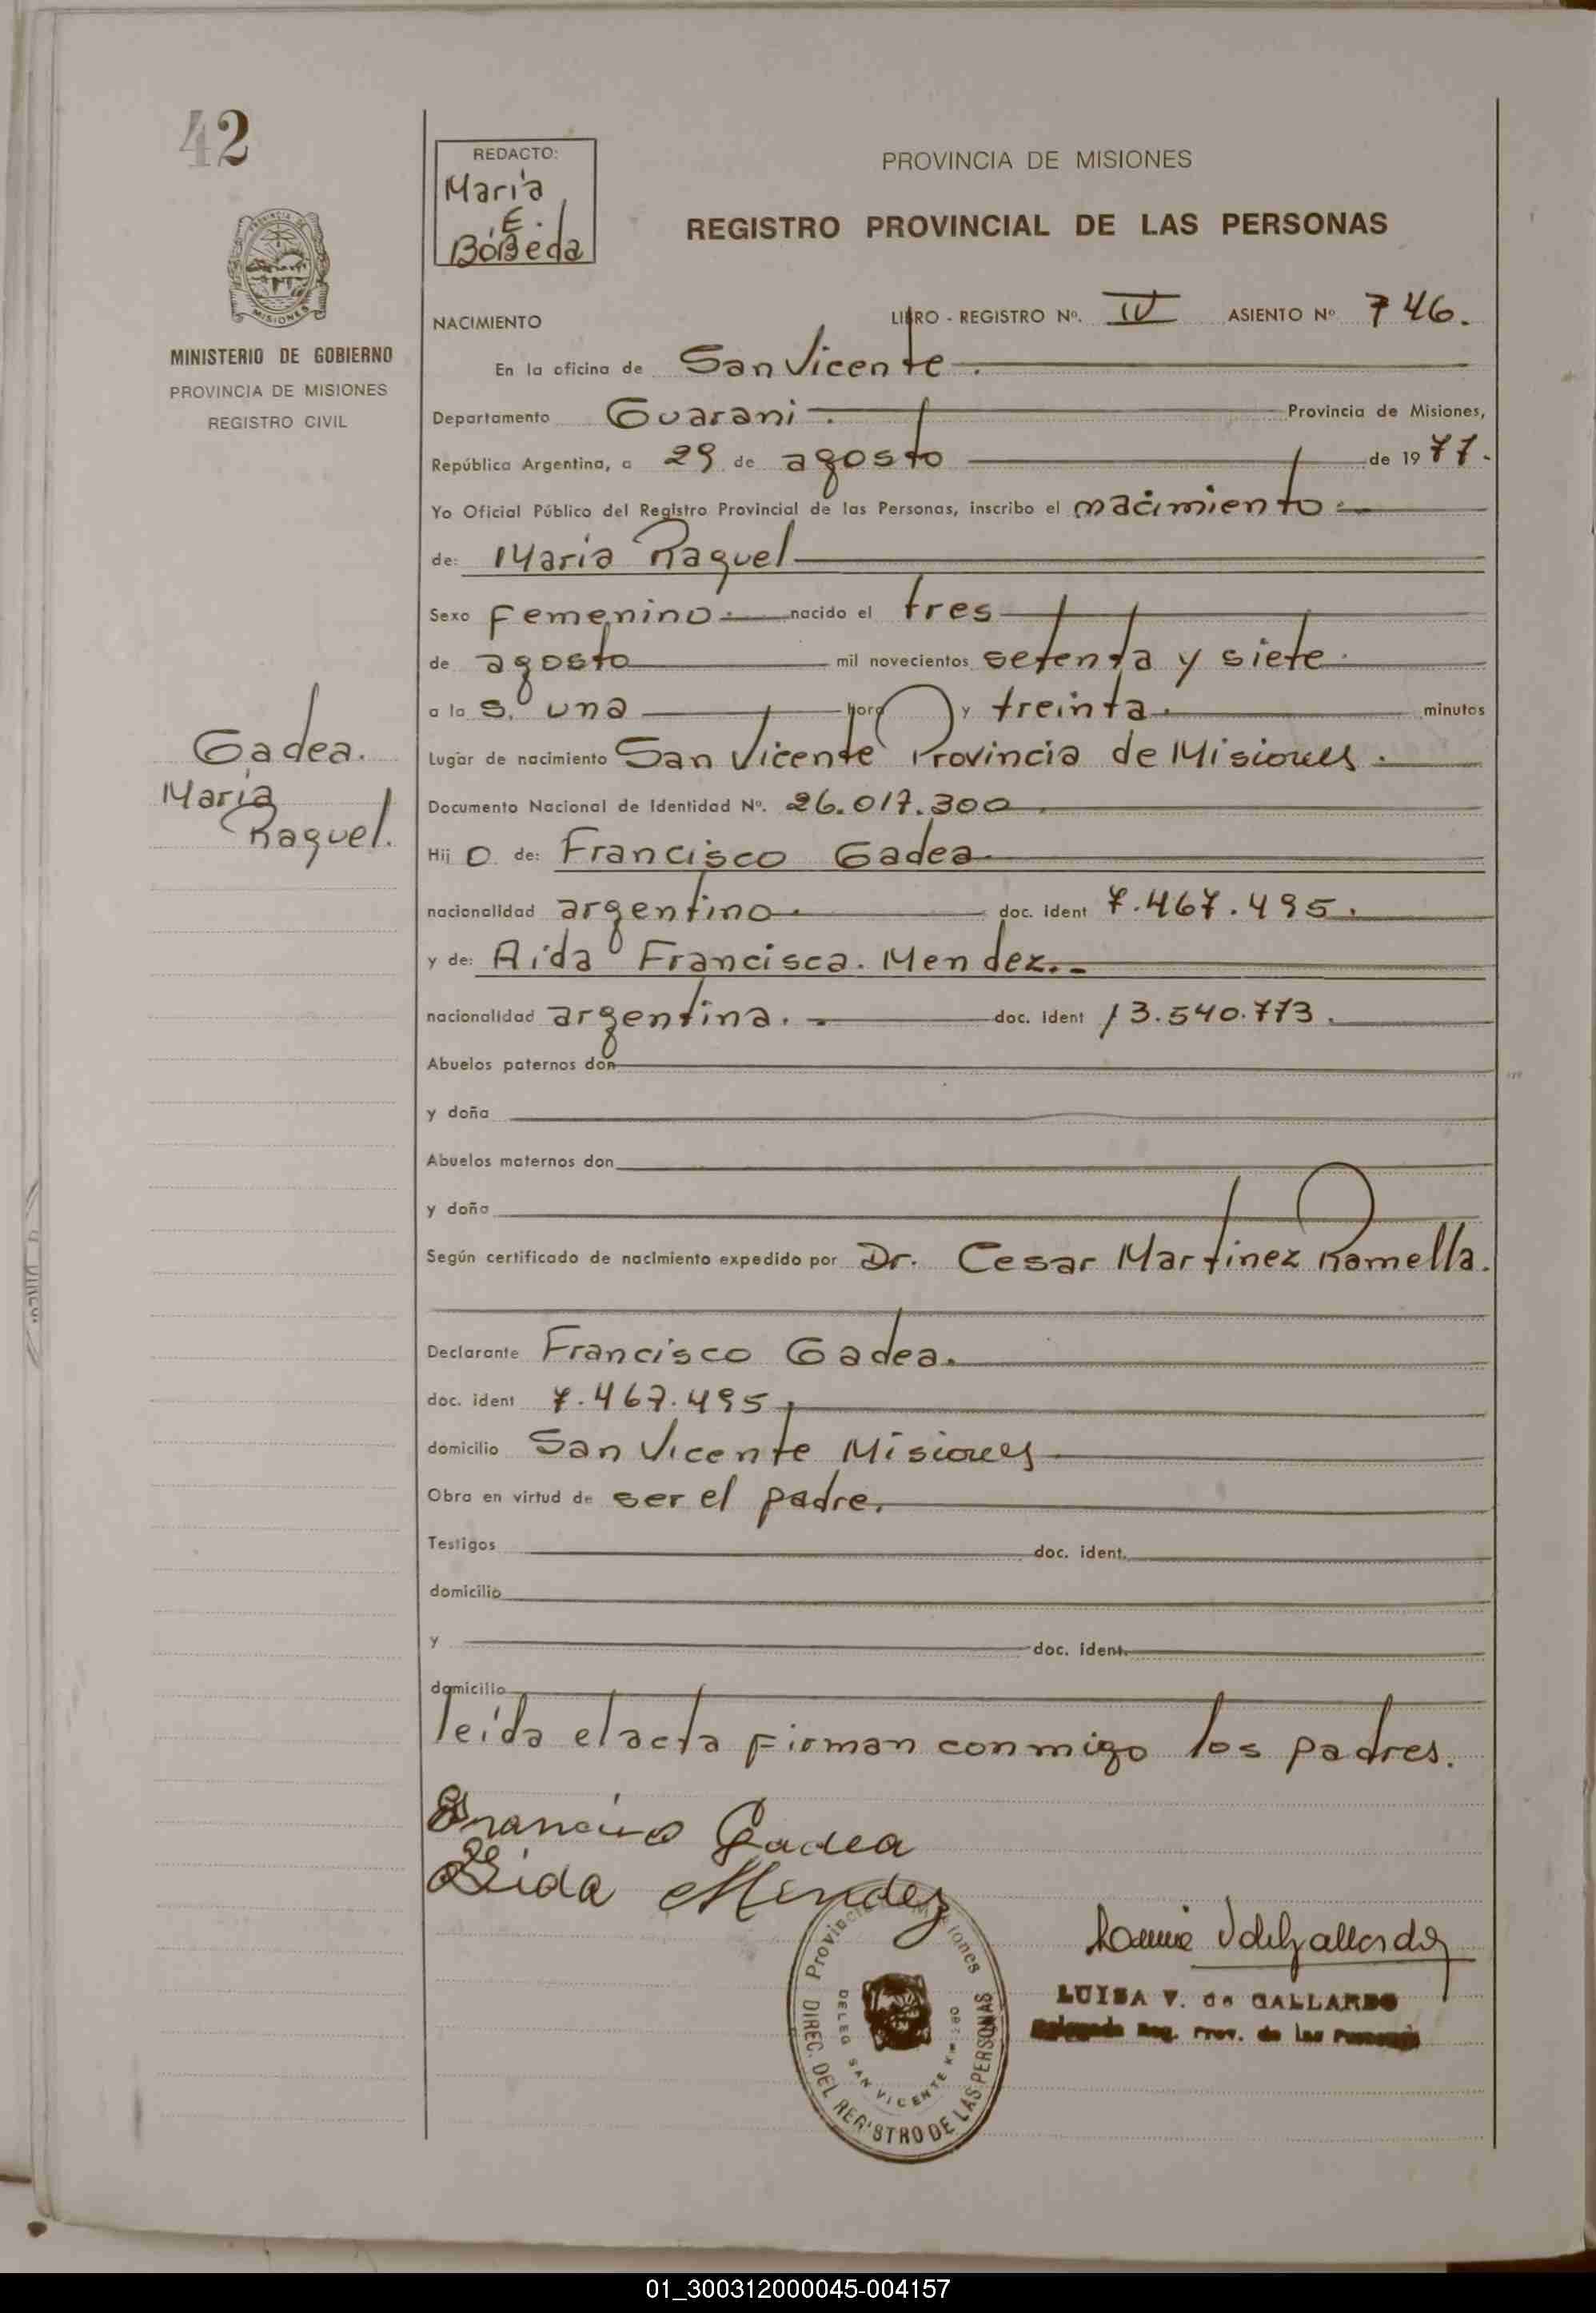 42
PROVINCIA DE MISIONES
MINISTERIO DE GOBIERNO
PROVINCIA DE MISIONES
REGISTRO CIVIL
Gadea.
Maria
Raquel.
REDACTO:
Maria
E.
Bóbeda
PROVINCIA DE MISIONES
REGISTRO PROVINCIAL DE LAS PERSONAS
NACIMIENTO LIBRO - REGISTRO Nº. IV ASIENTO Nº 746.
En la oficina de San Vicente.
Departamento Guarani. Provincia de Misiones,
República Argentina, a 29 de agosto de 1977.
Yo Oficial Público del Registro Provincial de las Personas, inscribo el nacimiento
de: Maria Raquel
Sexo Femenino. nacido el tres
de agosto mil novecientos setenta y siete.
a la s. una hora y treinta. minutos
Lugar de nacimiento San Vicente Provincia de Misiones.
Documento Nacional de Identidad Nº. 26.017.300.
Hij o de: Francisco Gadea
nacionalidad argentino. doc. ident 7.467.495.
y de: Aida Francisca. Mendez.
nacionalidad argentina. doc. ident 13.540.773.
Abuelos paternos don
y doña
Abuelos maternos don
y doña
Según certificado de nacimiento expedido por Dr. Cesar Martinez Ramella.
Declarante Francisco Gadea.
doc. ident 7.467.495.
domicilio San Vicente Misiones
Obra en virtud de ser el padre.
Testigos doc. ident.
domicilio
y doc. ident.
domicilio
leida el acta firman conmigo los padres.
Francisco Gadea
Aida Mendez
Provincia de Misiones
DIREC. DEL REGISTRO DE LAS PERSONAS
DELEG SAN VICENTE KM. 280
LUISA V. de GALLARDO
Delegada Reg. Prov. de las Personas
01_300312000045-004157